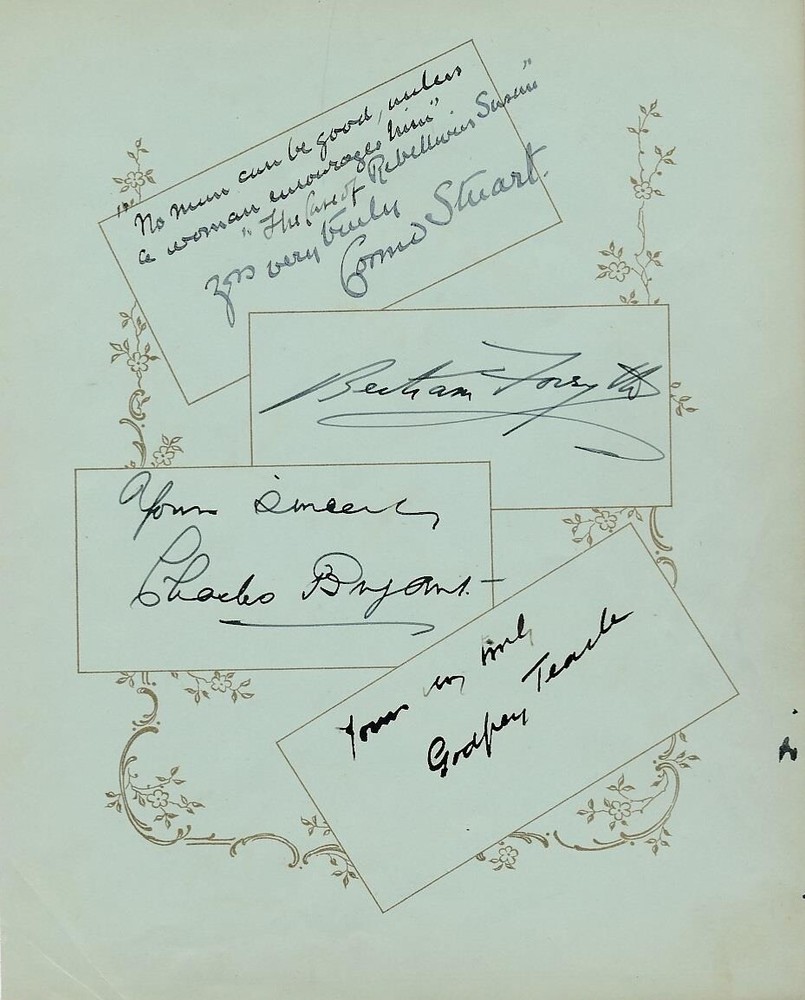 "No man can be good, unless
a woman encourages him"
"The Case of Rebellious Susan"
Yrs very truly
Cosmo Stuart.
Bertram Forsyth
Yours sincerely
Charles Bryant.
Yours very truly
Godfrey Tearle